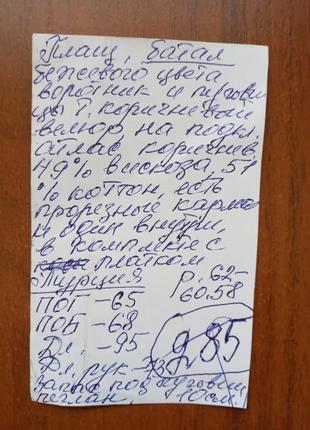 Плащ, батал
бежевого цвета
воротник и пугови
цы т. коричневый
велюр на подкл.
атлас коричнев.
49% вискоза, 51
% коттон, есть
прорезной карман
и один внутри,
в комплекте с
платком
Турция Р. 62-
60.58
ПОГ -65
ПОБ -68
Дл. -95
Дл. рук -73
под пуговиц
реглан, 10см.